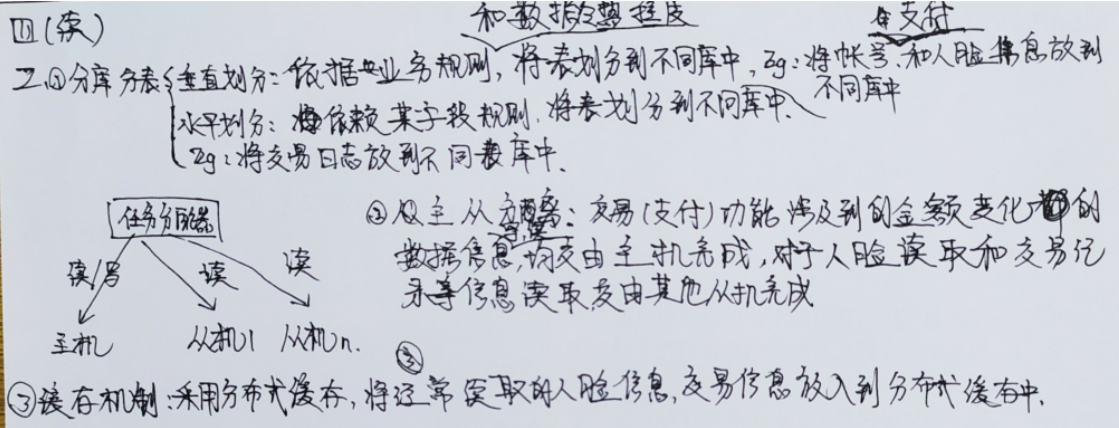 四(续)
和数据
支付
2.①分库分表{垂直划分:依据业务规则,将表划分到不同库中,eg:将帐号、和人脸信息放到
不同库中
水平划分:依赖某字段规则,将表划分到不同库中、
eg:将交易日志放到不同表库中.
任务分配器
读/写 读 读
主机 从机1 从机n.
②主从分离:交易(支付)功能涉及到的金额变化的
数据信息,均交由主机完成,对于人脸读取和交易记
录等信息读取交由其他从机完成
③
③缓存机制:采用分布式缓存,将经常读取的人脸信息,交易信息放入到分布式缓存中.